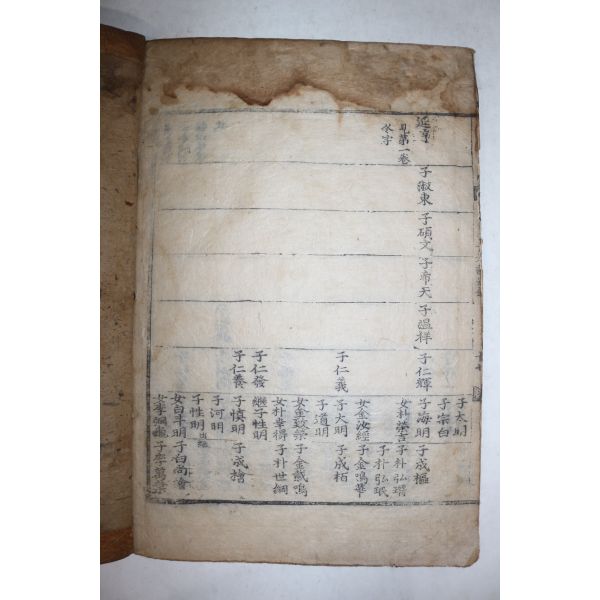 見第一卷
子淑東
子碩文
子希天
子溫祥
子仁輝
子仁義
子仁發
子仁養
子大明
子宗白
子海明
女朴榮吉
女金汝經
子大明
子道明
女金致榮
女朴幸得
継子性明
子慎明
子河明
子性明
女白斗明
子成樞
子朴弘
子朴弘珉
子金鳴華
子成栢
子金 鳴
子朴世綱
子成檜
子白尚會